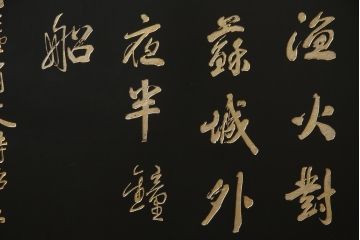 渔火對
蘇城外
夜半鐘
船